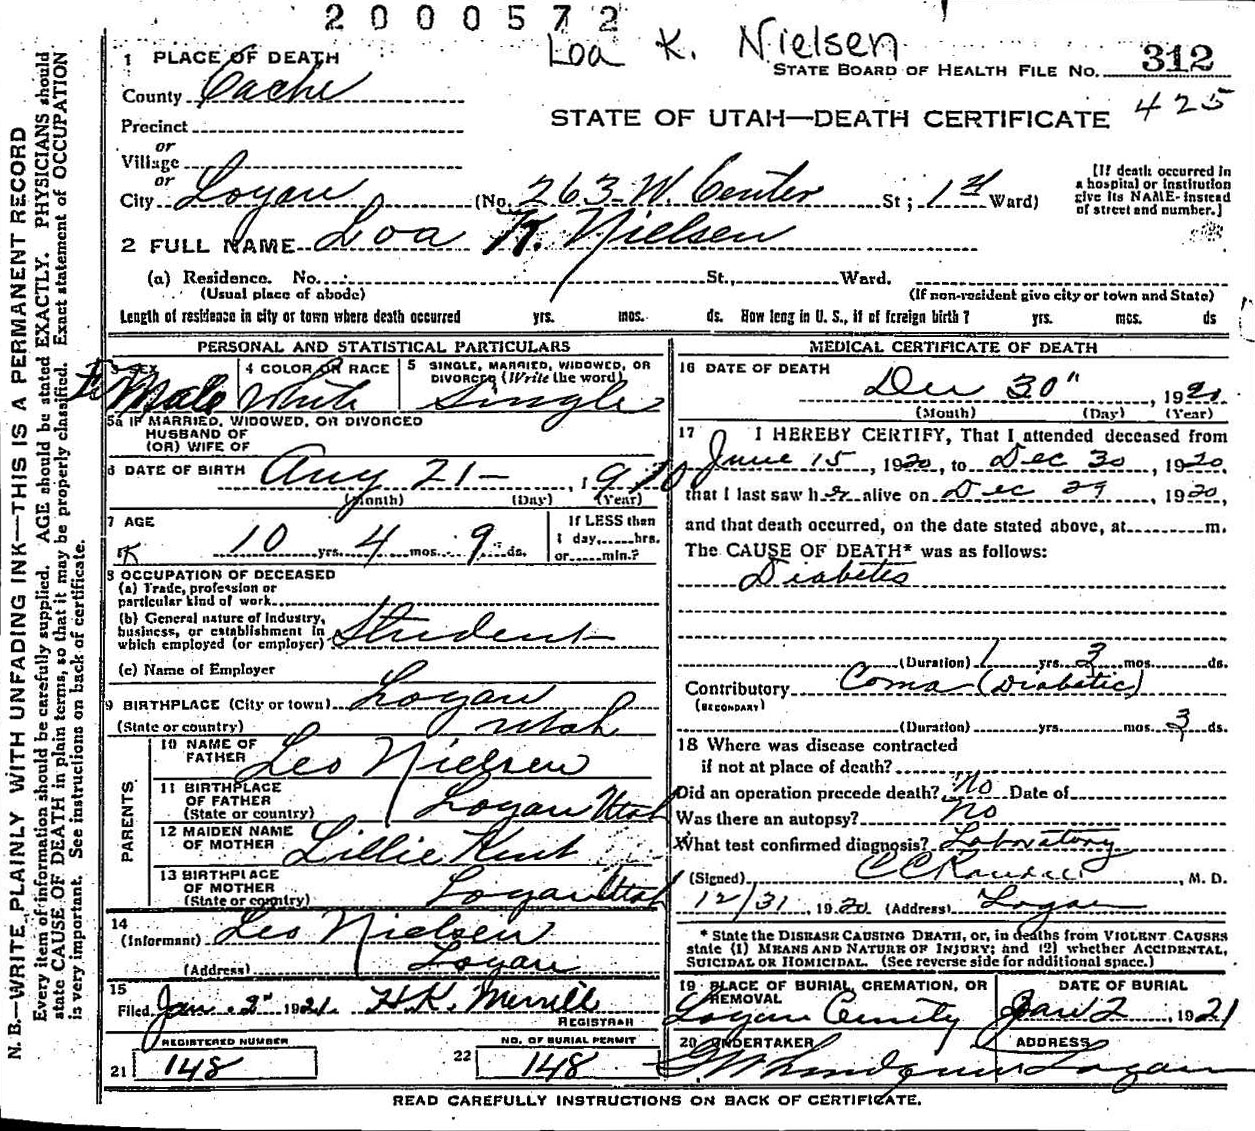 2000572
Loa K. Nielsen
STATE BOARD OF HEALTH FILE NO. 312
425
1 PLACE OF DEATH
County Cache
STATE OF UTAH—DEATH CERTIFICATE
Precinct
or
Village
or
City Logan (No. 263 W. Center St; 1st Ward)
[If death occurred in
a hospital or institution
give its NAME instead
of street and number.]
2 FULL NAME Loa K. Nielsen
(a) Residence. No. St., Ward.
(Usual place of abode) (If non-resident give city or town and State)
Length of residence in city or town where death occurred yrs. mos. ds. How long in U. S., if of foreign birth? yrs. mos. ds
N. B.—WRITE PLAINLY WITH UNFADING INK—THIS IS A PERMANENT RECORD
Every item of information should be carefully supplied. AGE should be stated EXACTLY. PHYSICIANS should
state CAUSE OF DEATH in plain terms, so that it may be properly classified. Exact statement of OCCUPATION
is very important. See instructions on back of certificate.
PERSONAL AND STATISTICAL PARTICULARS
3 SEX 4 COLOR OR RACE 5 SINGLE, MARRIED, WIDOWED, OR
DIVORCED (Write the word)
Fe Male White Single
5a IF MARRIED, WIDOWED, OR DIVORCED
HUSBAND OF
(OR) WIFE OF
6 DATE OF BIRTH Aug 21— , 1910
(Month) (Day) (Year)
7 AGE
10 yrs. 4 mos. 9 ds.
If LESS than
1 day, hrs.
or min.?
K
8 OCCUPATION OF DECEASED
(a) Trade, profession or
particular kind of work
(b) General nature of Industry,
business, or establishment in
which employed (or employer) Student
(c) Name of Employer
9 BIRTHPLACE (City or town) Logan
(State or country) Utah
PARENTS
10 NAME OF
FATHER Leo Nielsen
11 BIRTHPLACE
OF FATHER
(State or country) Logan Utah
12 MAIDEN NAME
OF MOTHER Lillie Kent
13 BIRTHPLACE
OF MOTHER
(State or country) Logan Utah
14
(Informant) Leo Nielsen
(Address) Logan
15
Filed Jan. 2" 1921. H.K. Merrill
REGISTRAR
REGISTERED NUMBER NO. OF BURIAL PERMIT
21 148 22 148
MEDICAL CERTIFICATE OF DEATH
16 DATE OF DEATH
Dec 30" , 1920
(Month) (Day) (Year)
17 I HEREBY CERTIFY, That I attended deceased from
June 15, 1920, to Dec 30, 1920,
that I last saw her alive on Dec 29, 1920,
and that death occurred, on the date stated above, at m.
The CAUSE OF DEATH* was as follows:
Diabetes
(Duration) 1 yrs. 3 mos. ds.
Contributory Coma (Diabetic)
(SECONDARY)
(Duration) yrs. mos. 3 ds.
18 Where was disease contracted
if not at place of death?
Did an operation precede death? No Date of
Was there an autopsy? No
What test confirmed diagnosis? Laboratory
(Signed) C C , M. D.
12/31, 1920 (Address) Logan
* State the DISEASE CAUSING DEATH, or, in deaths from VIOLENT CAUSES
state (1) MEANS AND NATURE OF INJURY; and (2) whether ACCIDENTAL,
SUICIDAL OR HOMICIDAL. (See reverse side for additional space.)
19 PLACE OF BURIAL, CREMATION, OR
REMOVAL
DATE OF BURIAL
Logan Jan 2, 1921
20 UNDERTAKER ADDRESS
Logan
READ CAREFULLY INSTRUCTIONS ON BACK OF CERTIFICATE.